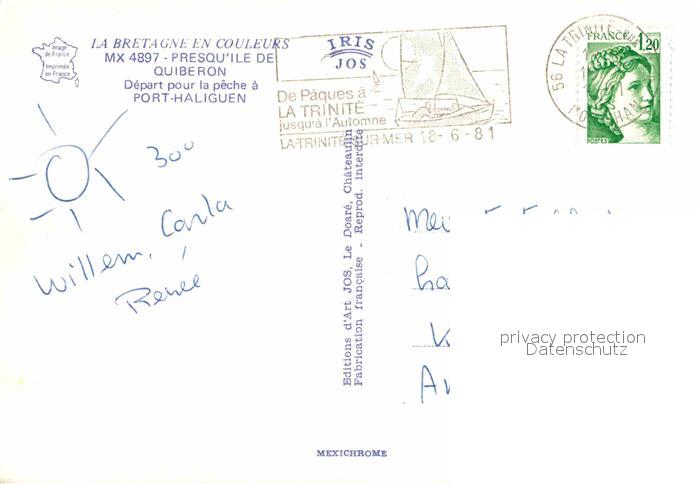 Image
de France
Imprimée
en France
LA BRETAGNE EN COULEURS
MX 4897 - PRESQU'ILE DE
QUIBERON
Départ pour la pêche à
PORT-HALIGUEN
IRIS
JOS
De Pâques à
LA TRINITÉ
jusqu'à l'Automne
LA TRINITE SUR MER 18-6-81
56 LA TRINITE
FRANCE
1,20
POSTES
30°
Willem, Carla,
Renée
Editions d'Art JOS, Le Doaré, Châteaulin
Fabrication française - Reprod. interdite
privacy protection
Datenschutz
MEXICHROME